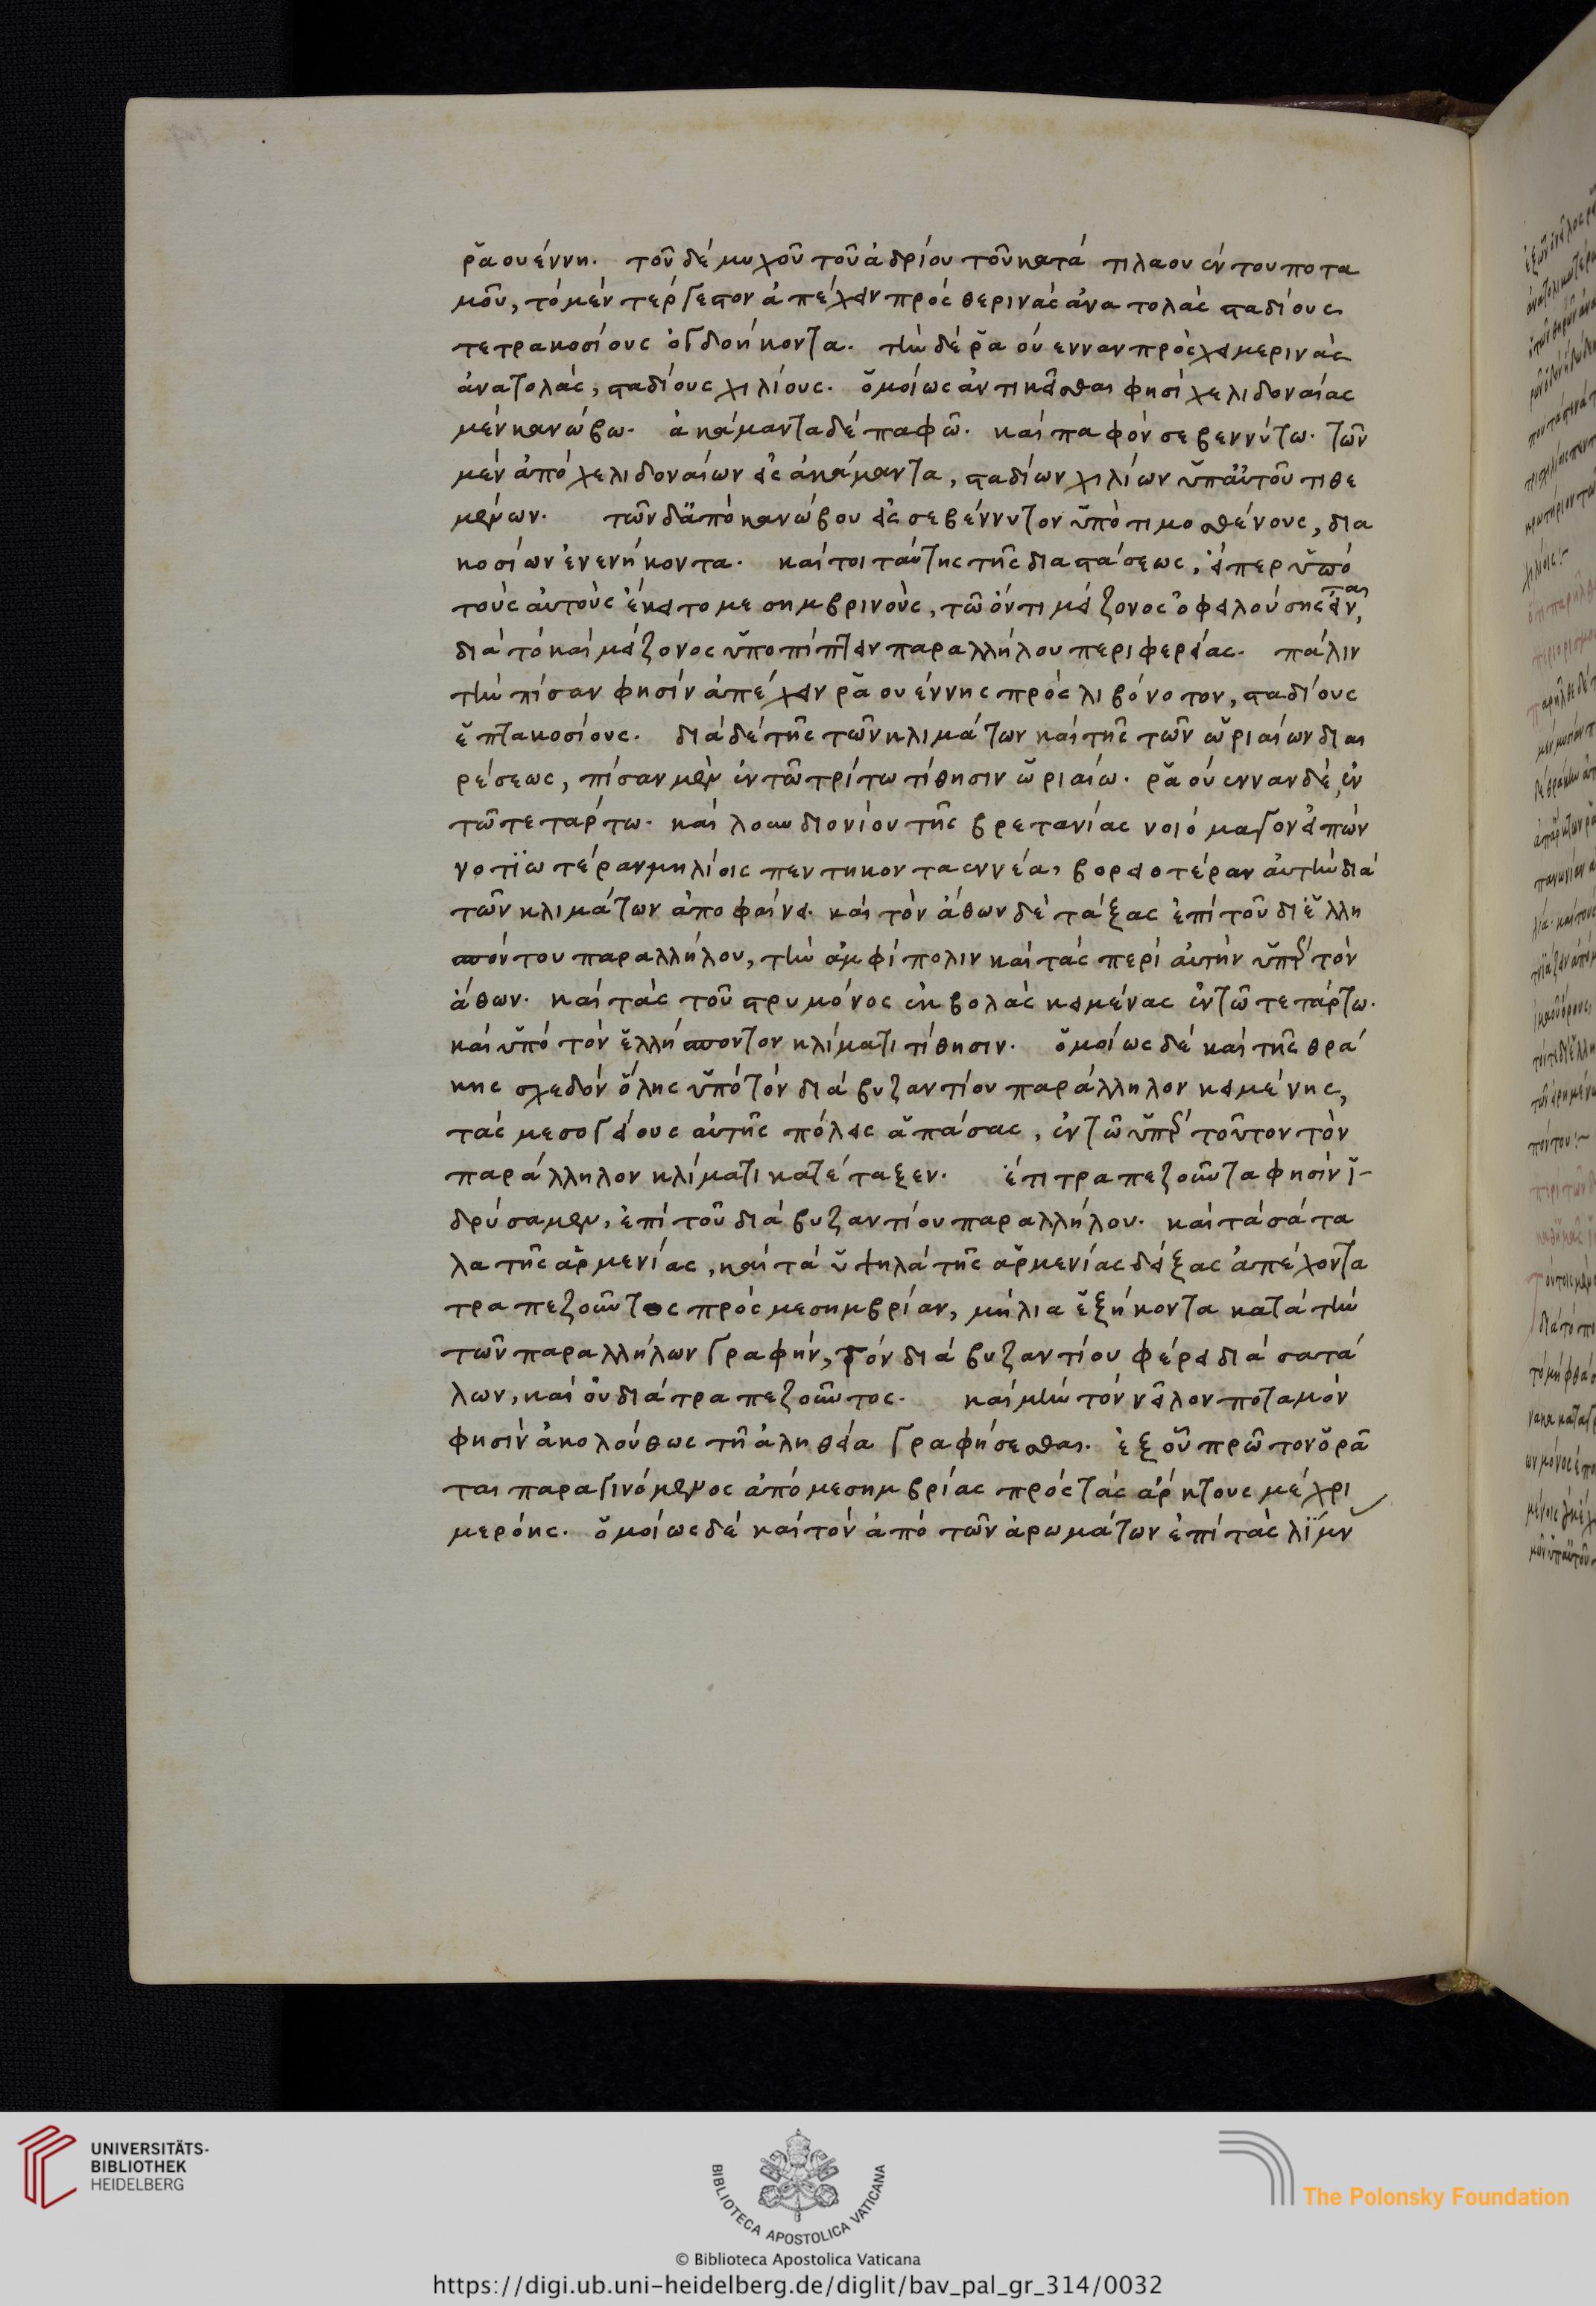 ῥᾶουέννη. τοῦ δὲ μυχοῦ τοῦ ἀδρίου τοῦ κατὰ τιλαουεντου ποτα
μοῦ, τὸ μὲν τέργεστον ἀπέχειν πρὸς θερινὰς ἀνατολὰς σταδίους
τετρακοσίους ὀγδοήκοντα. τὴν δὲ ῥᾶούενναν πρὸς χειμερινὰς
ἀνατολὰς, σταδίους χιλίους. ὁμοίως ἀντικεῖσθαι φησὶ χελιδοναίας
μὲν κανώβω. ἀκάμαντα δὲ παφῶ. καὶ παφὸν σεβεννύτω. τῶν
μὲν ἀπὸ χελιδοναίων εἰς ἀκάμαντα, σταδίων χιλίων ὑπ' αὐτοῦ τιθε
μένων. τῶν δ' ἀπὸ κανώβου εἰς σεβέννυτον ὑπὸ τιμοσθένους, δια
κοσίων ἐνενήκοντα. καίτοι ταύτης τῆς διαστάσεως, εἴπερ ὑπὸ
τοὺς αὐτοὺς ἔκειτο μεσημβρινοὺς, τῶ ὄντι μείζονος ὀφειλούσης εἶν,
ται
διὰ τὸ καὶ μείζονος ὑποπίπτειν παραλλήλου περιφερείας. πάλιν
τὴν πίσαν φησὶν ἀπέχειν ῥᾶουέννης πρὸς λιβόνοτον, σταδίους
ἑπτακοσίους. διὰ δὲ τῆς τῶν κλιμάτων καὶ τῆς τῶν ὡριαίων διαι
ρέσεως, πίσαν μὲν ἐν τῶ τρίτω τίθησιν ὡριαίω. ῥᾶούενναν δὲ, ἐν
τῶ τετάρτω. καὶ λουνδιονίου τῆς βρετανίας νοιόμαγον εἰπὼν
νοτϊωτέραν μηλίοις πεντηκοντα εννέα, βορειοτέραν αὐτὴν διὰ
τῶν κλιμάτων ἀποφαίνει. καὶ τὸν ἄθων δὲ τάξας ἐπὶ τοῦ δι' ἑλλη
σπόντου παραλλήλου, τὴν ἀμφίπολιν καὶ τὰς περὶ αὐτὴν ὑπὲρ τὸν
ἄθων. καὶ τὰς τοῦ στρυμόνος ἐκβολὰς κειμένας ἐν τῶ τετάρτω.
καὶ ὑπὸ τὸν ἑλλήσποντον κλίματι τίθησιν. ὁμοίως δὲ καὶ τῆς θρά
κης σχεδὸν ὅλης ὑπὸ τὸν διὰ βυζαντίου παράλληλον κειμένης,
τὰς μεσογείους αὐτῆς πόλεις ἁπάσας, ἐν τῶ ὑπὲρ τοῦτον τὸν
παράλληλον κλίματι κατέταξεν. ἔτι τραπεζοῦντα φησὶν ἵ-
δρύσαμεν, ἐπὶ τοῦ διὰ βυζαντίου παραλλήλου. καὶ τὰ σάτα
λα τῆς ἀρμενίας, καὶ τὰ ὑψηλὰ τῆς ἀρμενίας δείξας ἀπέχοντα
τραπεζοῦντος πρὸς μεσημβρίαν, μήλια ἑξήκοντα κατὰ τὴν
τῶν παραλλήλων γραφὴν, τὸν διὰ βυζαντίου φέρει διὰ σατά
λων, καὶ οὐ διὰ τραπεζοῦντος. καὶ μὴν τὸν νεῖλον ποταμὸν
φησὶν ἀκολούθως τῆ ἀληθεία γραφήσεσθαι. ἐξ οὗ πρῶτον ὁρᾶ
ται παραγινόμενος ἀπὸ μεσημβρίας πρὸς τὰς ἄρκτους μέχρι
μερόης. ὁμοίως δὲ καὶ τὸν ἀπὸ τῶν ἀρωμάτων ἐπὶ τὰς λίμν
UNIVERSITÄTS-
BIBLIOTHEK
HEIDELBERG
BIBLIOTECA APOSTOLICA VATICANA
The Polonsky Foundation
© Biblioteca Apostolica Vaticana
https://digi.ub.uni-heidelberg.de/diglit/bav_pal_gr_314/0032